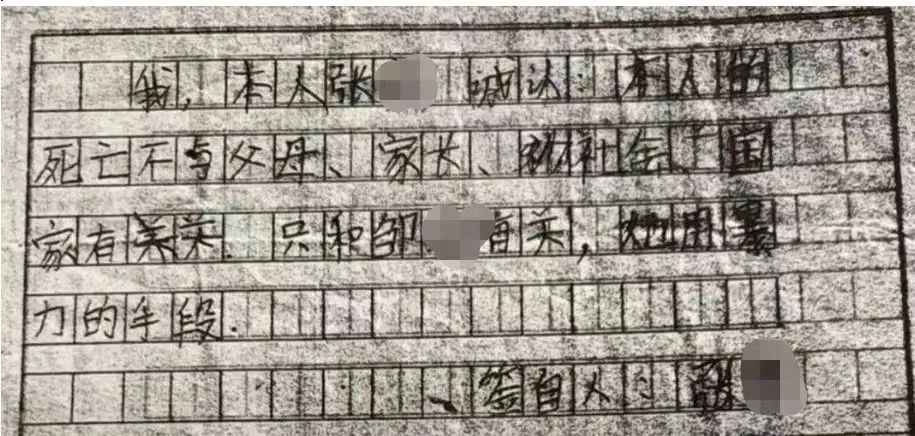 我，本人张 诚认：本人的
死亡不与父母、家长、 社会、国
家有关. 只和邹 有关，她用暴
力的手段.
、签自人：张